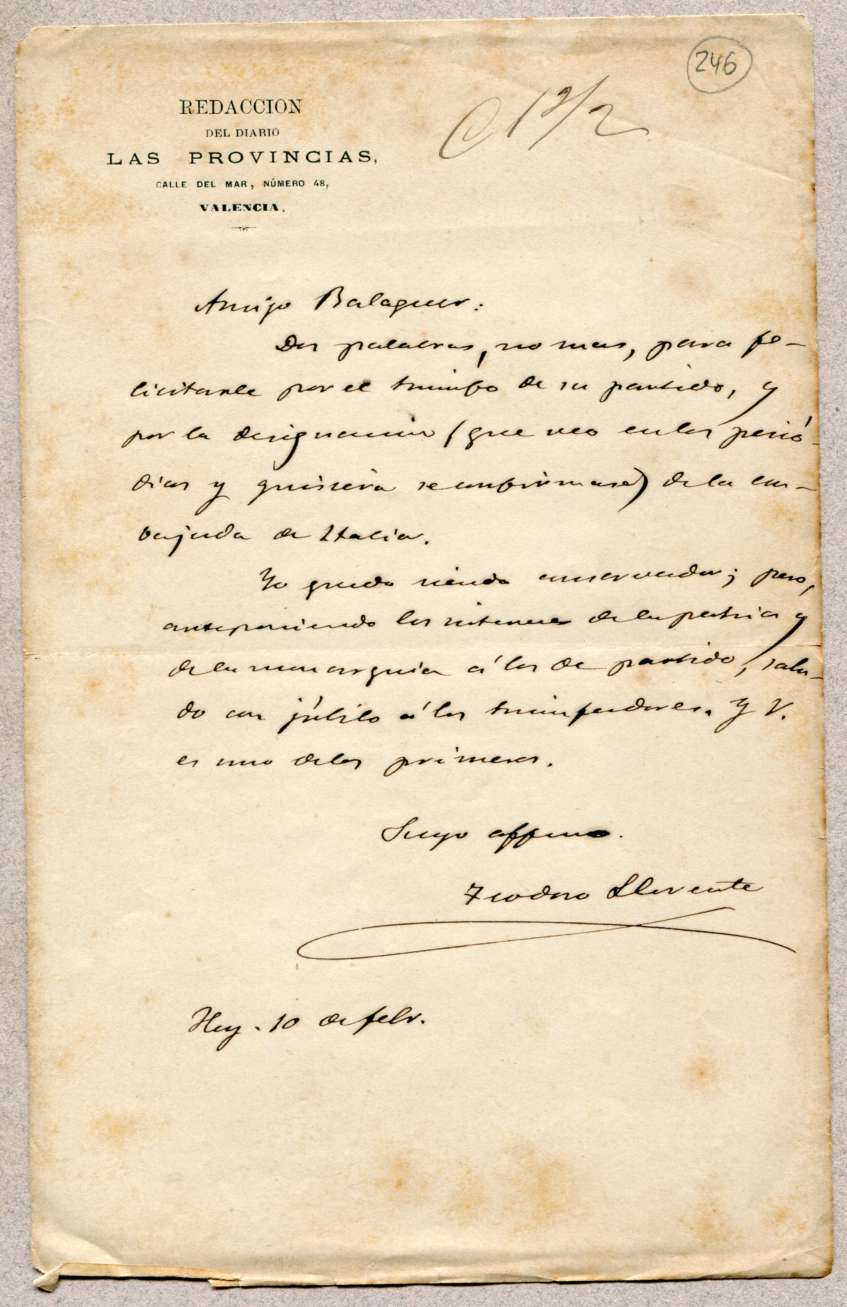 246
C 12/2
REDACCION
DEL DIARIO
LAS PROVINCIAS,
CALLE DEL MAR, NÚMERO 48,
VALENCIA.
Amigo Balaguer:
Dos palabras, no mas, para fe-
licitarle por el triunfo de su partido, y
por la designacion (que veo en los perió-
dicos y quisiera se confirmase) de la em-
bajada de Italia.
Yo quedo siendo conservador; pero,
anteponiendo los intereses de la patria y
de la monarquia á los de partido, salu-
do con júbilo á los triunfadores. Y V.
es uno de los primeros.
Suyo affmo.
Teodoro Llorente
Hoy. 10 de febr.